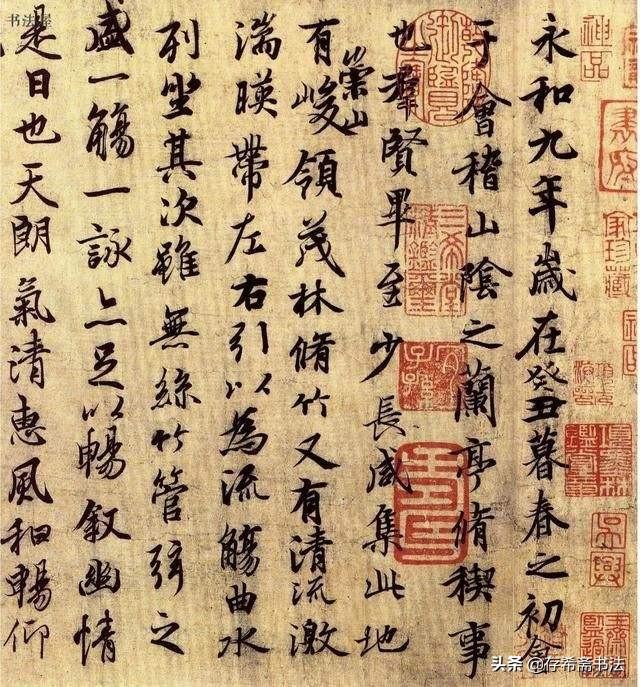 永和九年歲在癸丑暮春之初會
于會稽山陰之蘭亭脩稧事
也羣賢畢至少長咸集此地
有崇山峻領茂林脩竹又有清流激
湍暎帶左右引以為流觴曲水
列坐其次雖無絲竹管弦之
盛一觴一詠亦足以暢敘幽情
是日也天朗氣清惠風和暢仰
神品
书法屋
头条 @存希斋书法